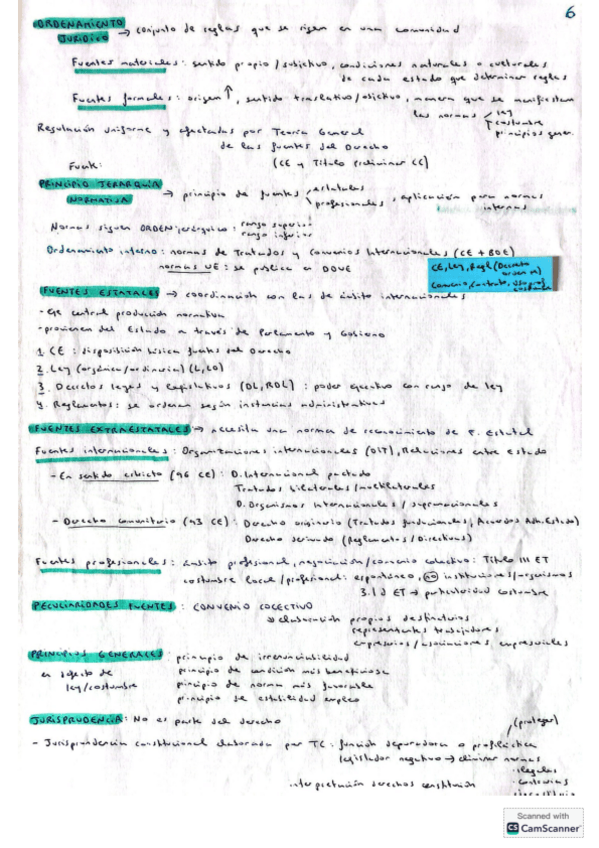 6
ORDENAMIENTO
JURÍDICO → conjunto de reglas que se rigen en una comunidad
Fuentes materiales: sentido propio / subjetivo, condiciones naturales o culturales
de cada estado que determinan reglas
Fuentes formales: origen ↑, sentido translativo/objetivo, manera que se manifiestan
las normas ley
costumbre
principios gener.
Regulación uniforme y afectadas por Teoría General
de las fuentes del Derecho
Fuente: (CE y Título preliminar CC)
PRINCIPIO JERARQUÍA
NORMATIVA → principio de fuentes estatales
profesionales, aplicación para normas
internas
Normas siguen ORDEN jerárquico: rango superior
rango inferior
Ordenamiento interno: normas de Tratados y Convenios Internacionales (CE + BOE)
normas UE: se publica en DOUE
CE, Ley, Regl (Decreto
orden M)
Convenio, contrato, uso prof
costumbre
FUENTES ESTATALES → coordinación con las de ámbito internacionales
- Eje central producción normativa
- provienen del Estado a través de Parlamento y Gobierno
1. CE: disposición básica fuentes del Derecho
2. Ley (orgánica/ordinaria) (L, LO)
3. Decretos leyes y legislativos (DL, RDL): poder ejecutivo con rango de ley
4. Reglamentos: se ordenan según instancias administrativas
FUENTES EXTRAESTATALES → necesita una norma de reconocimiento de F. Estatal
Fuentes internacionales: Organizaciones internacionales (OIT), Relaciones entre estado
- En sentido estricto (96 CE): D. Internacional pactado
Tratados bilaterales/multilaterales
D. Organismos Internacionales / supranacionales
- Derecho comunitario (93 CE): Derecho originario (Tratados fundacionales, Acuerdos Adh. Estado)
Derecho derivado (Reglamentos / Directivas)
Fuentes profesionales: ámbito profesional, negociación/convenio colectivo: Título III ET
costumbre local/profesional: espontáneo, no instituciones/organismos
3.1 d ET → particularidad costumbre
PECULIARIDADES FUENTES: CONVENIO COLECTIVO
elaboración propios destinatarios
representantes trabajadores
empresarios/asociaciones empresariales
PRINCIPIOS GENERALES: principio de irrenunciabilidad
en defecto de principio de condición más beneficiosa
ley/costumbre principio de norma más favorable
principio de estabilidad empleo
JURISPRUDENCIA: No es parte del derecho
(proteger)
- Jurisprudencia constitucional elaborada por TC: función depuradora o profiláctica
legislador negativo → eliminar normas
· ilegales
· contrarias
interpretación derechos constitución
Scanned with
CS CamScanner